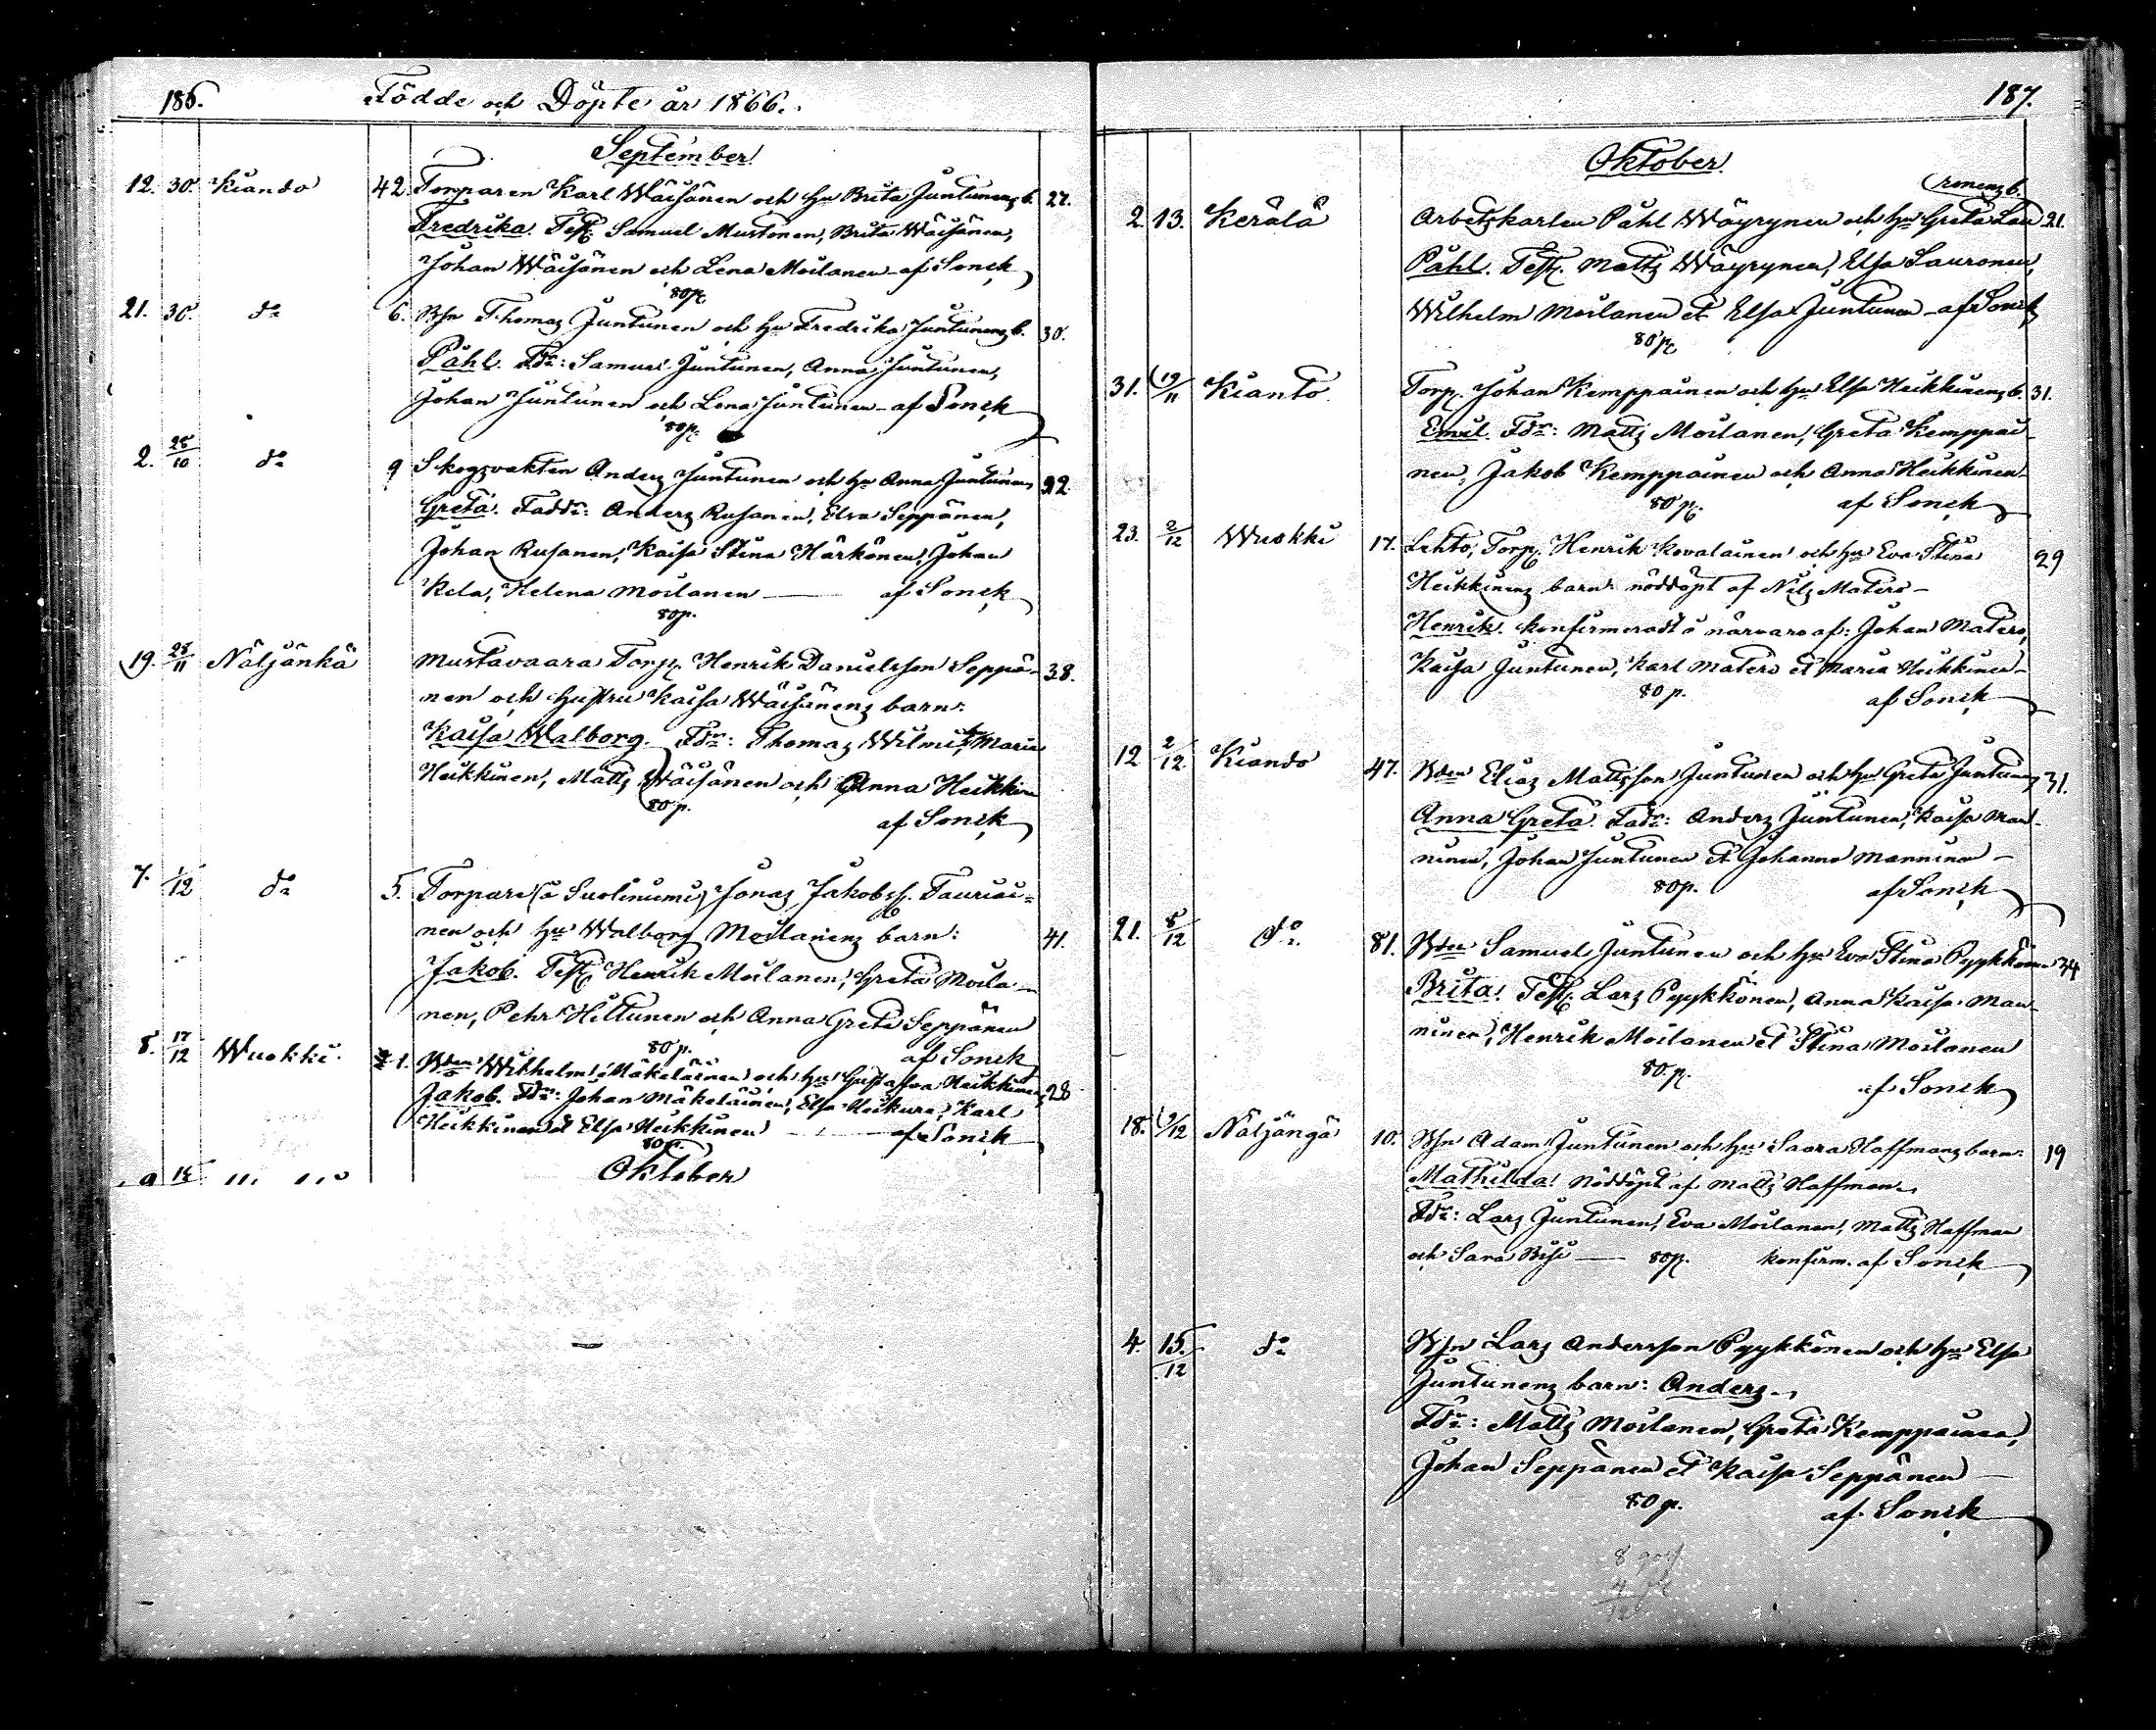 186.
Födde och Döpte år 1866.
September
12. 30. Kiando 42. Torparen Karl Wäisänen och hu Brita Juntunens b. 27.
Fredrika. Test. Samuel Mustonen, Brita Wäisänen,
Johan Wäisänen och Lena Moilanen af Sonck
80 p.
21. 30. do 6. Bsn Thomas Juntunen och hu Fredrika Juntunens b. 30.
Påhl. Fdr: Samuel Juntunen, Anna Juntunen,
Johan Juntunen och Lena Juntunen - af Sonck
80 p.
2. 28/10 do 9 Skogsvakten Anders Juntunen och hu Anna Juntunens 22.
Greta. Faddr: Anders Rusanen, Elsa Seppänen,
Johan Rusanen, Kaisa Stina Härkönen, Johan
Kela, Helena Moilanen — af Sonck
80 p.
19. 28/11 Näljänkä Mustavaara Torp. Henrik Danielsson Seppä- 38.
nen och hustru Kaisa Wäisänens barn:
Kaisa Walborg. Fdr: Thomas Wilmi, Maria
Heikkinen, Matts Wäisänen och Anna Heikkinen
80 p.
af Sonck
7. 1/12 do 5. Torpare (å Suoliniemi) Jonas Jakobss. Tauriai-
nen och hu Walborg Moilanens barn: 41.
Jakob. Test. Henrik Moilanen, Greta Moila-
nen, Pehr Hiltunen och Anna Greta Seppänen
80 p. af Sonck
8. 17/12 Wuokki 1. Wilhelm Mäkeläinen och hu Gustafva Heikkinens 28
Jakob. Fdr: Johan Mäkeläinen, Elsa Heikura, Karl
Heikkinen et Elsa Heikkinen — af Sonck
80 p.
Oktober
187.
Oktober
ronens b.
2. 13. Kerälä Arbetskarlen Påhl Wäyrynen och hu Greta Lau 21.
Påhl. Test. Matts Wäyrynen, Elsa Lauronen,
Wilhelm Moilanen et Elsa Juntunen - af Sonck
80 p.
31. 19/11 Kianto Torp. Johan Kemppainen och hu Elsa Heikkinens b. 31.
Emil. Fdr: Matts Moilanen, Greta Kemppai-
nen, Jakob Kemppainen och Anna Heikkinen
80 p. af Sonck
23. 2/12 Wuokki 17. Lehto, Torp. Henrik Kovalainen och hu Eva Stina 29
Heikkinens barn: nöddöpt af Nils Matero -
Henrik. konfirmeradt i närvaro af: Johan Matero,
Kaisa Juntunen, Karl Matero et Maria Heikkinen -
80 p. af Sonck
12 2/12 Kiando 47. Elias Mattsson Juntunen och hu Greta Juntunens 31.
Anna Greta. Fadr: Anders Juntunen, Kaisa Man-
ninen, Johan Juntunen et Johanna Manninen -
80 p. af Sonck
21. 8/12 do. 81. Samuel Juntunen och hu Eva Stina Pyykkönens 34
Brita. Test. Lars Pyykkönen, Anna Kaisa Man-
ninen, Henrik Moilanen et Stina Moilanen
80. p. af Sonck
18. 9/12 Näljängä 10. Bsn Adam Juntunen och hu Saara Haffmans barn: 19
Mathilda. Nöddöpt af Matts Haffman.
Fdr: Lars Juntunen, Eva Moilanen, Matts Haffman
och Sara — 80 p. konfirm. af Sonck
4. 15./12 do Bsn Lars Andersson Pyykkönen och hu Elsa
Juntunens barn: Anders.
Fdr: Matts Moilanen, Greta Kemppainen,
Johan Seppänen et Kaisa Seppänen -
80 p. af Sonck